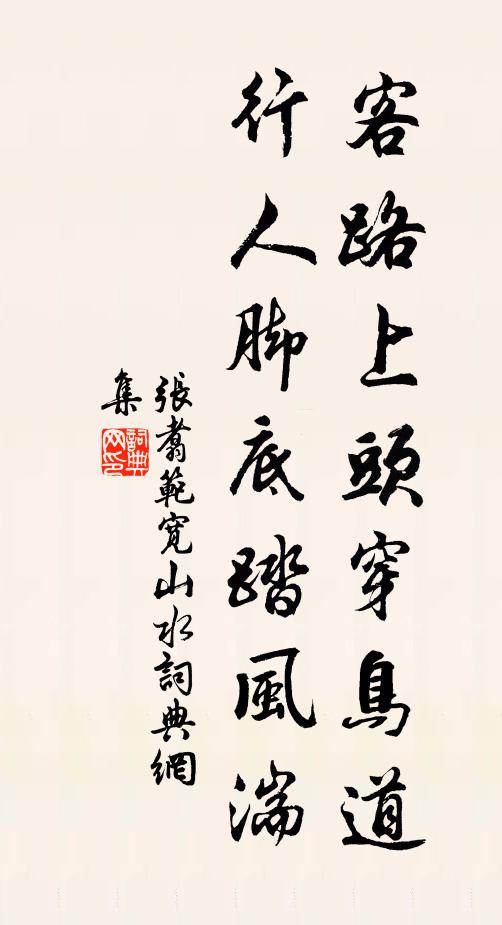 客路上頭穿鳥道
行人脚底踏風湍
張翥範寬山水詞典網
集
詞典网印